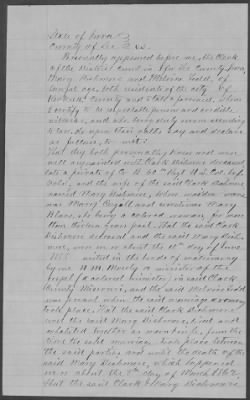 State of Iowa
County of Lee } ss.
Personally appeared before me, the Clerk
of the District Court in & for the County Iowa,
Mary Dishmore and Melvina Todd, of
lawful age, both residents of the city of
Keokuk County and State aforesaid, whom
I certify to be respectable persons and credible
witnesses, and who being duly sworn according
to law, do upon their oaths say and declare
as follows, to wit:
That they both personally knew and were
well acquainted with Clark Dishmore deceased
late a private of Co. 60th Regt U.S. Col. Inf.
Vols., and the wife of the said Clark Dishmore
named Mary Dishmore, whose maiden name
was Mary and sometimes Mary
, she being a colored woman, for more
than thirteen years past. That the said Clark
Dishmore deceased and the said Mary Dishmore,
were on or about the 10th day of June
united in the bonds of matrimony
by one a minister of the
gospel (a colored minister) in said Clark
County Missouri, and the said Melvina Todd
was present when the said marriage ceremony
took place. That the said Clark Dishmore
and the said Mary Dishmore, lived and
cohabited together as man & wife, from the
time the said marriage took place between
the said parties, and until the death of the
said Mary Dishmore, which happened
on or about the day of March 1862,
that the said Clark & Mary Dishmore,